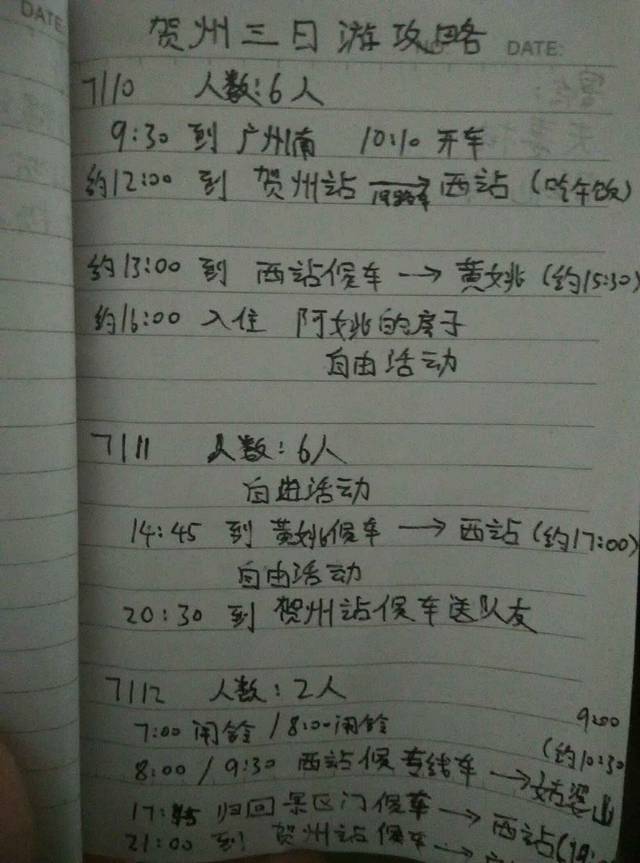 DATE:
贺州三日游攻略
DATE:
7/10 人数:6人
9:30 到 广州南 10:10 开车
约12:00 到 贺州站 → 西站 (吃午饭)
约13:00 到 西站候车 → 黄姚 (约15:30)
约16:00 入住 阿姚的房子
自由活动
7/11 人数:6人
自由活动
14:45 到 黄姚候车 → 西站 (约17:00)
自由活动
20:30 到 贺州站候车送队友
7/12 人数:2人
7:00 闹铃 / 8:00闹铃
9:00
8:00 / 9:30 西站候专线车 → 姑婆山 (约10:30
17:45 归回景区门候车 → 西站(
21:00 到 贺州站候车 →